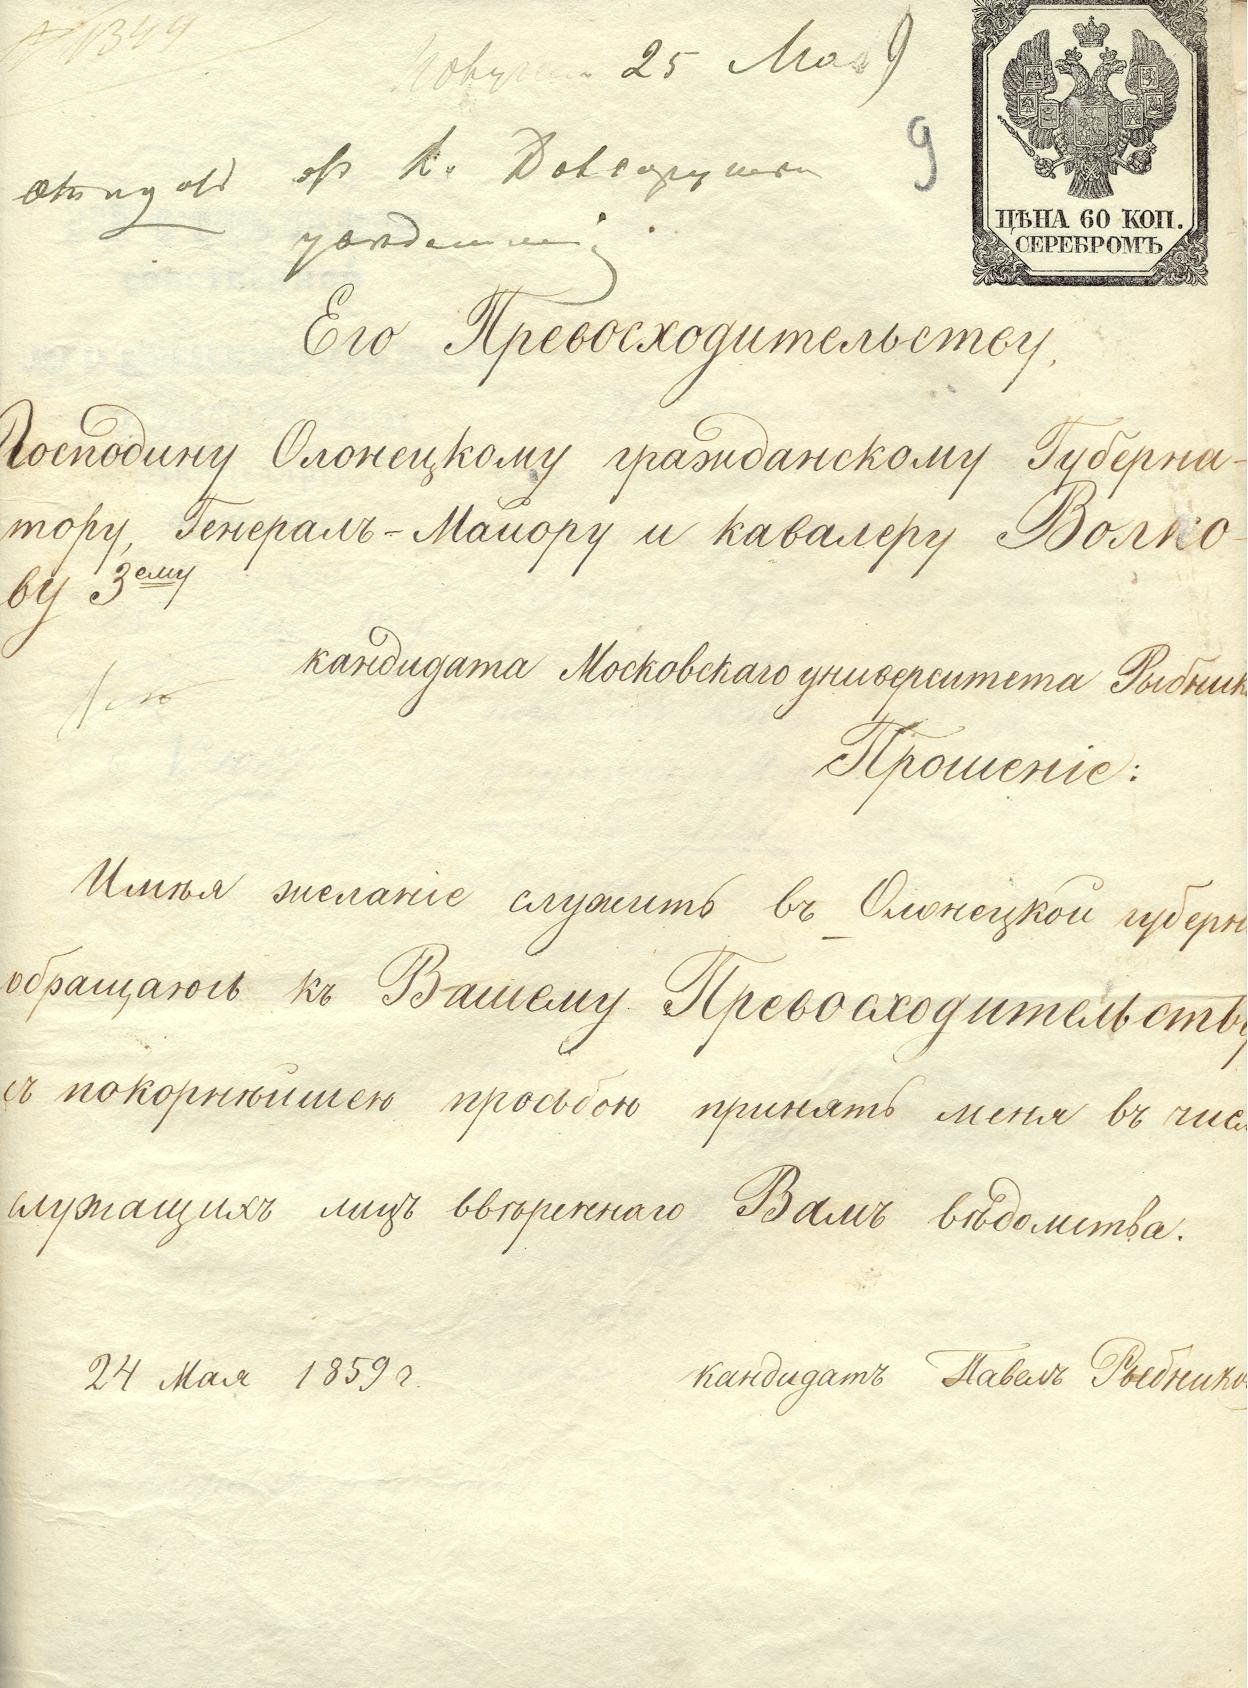 № 1349
25 Мая
9
ЦѢНА 60 КОП.
СЕРЕБРОМЪ
Его Превосходительству,
Господину Олонецкому гражданскому Губерна-
тору, Генералъ-Маиору и кавалеру Волко-
ву 3ему
кандидата Московскаго университета Рыбник
Прошеніе:
Имѣя желаніе служить въ Олонецкой губерн
обращаюсь къ Вашему Превосходительству
съ покорнѣйшею просьбою принять меня въ числ
служащихъ лицъ ввѣреннаго Вамъ вѣдомства.
24 Мая 1859 г.
кандидатъ Павелъ Рыбников